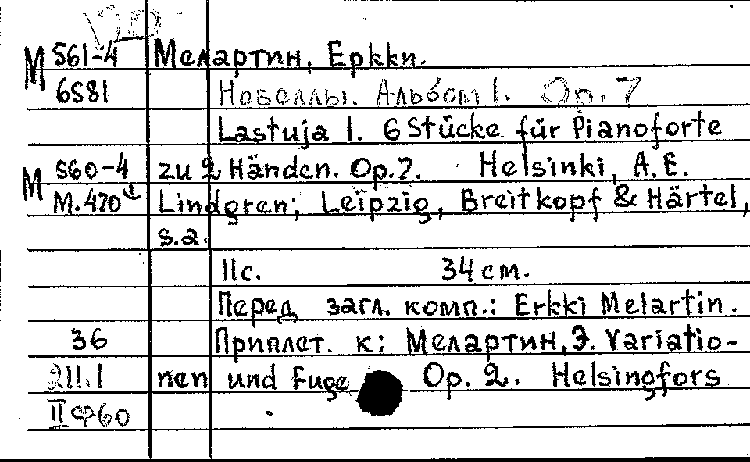 М 561-4 Мелартин, Еркки.
6581 Новеллы. Альбом 1. Op. 7
Lastuja 1. 6 Stücke für Pianoforte
М 560-4 zu 2 Händen. Op.7. Helsinki, A.E.
М.470 Lindgren; Leipzig, Breitkopf & Härtel,
s.a.
11с. 34 см.
Перед загл. комп.: Erkki Melartin.
36 Приплет. к: Мелартин, Э. Variatio-
211.1 nen und Fuge Op. 2. Helsingfors
II ф60